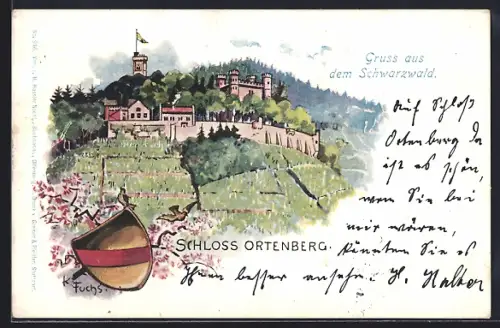 Gruss aus
dem Schwarzwald.
Auf Schloß
Ortenberg Da
ist es schön,
wen Sie bei
mir wären,
könnten Sie es
Ihnen besser ansehn. H. Halter
SCHLOSS ORTENBERG.
K. Fuchs.